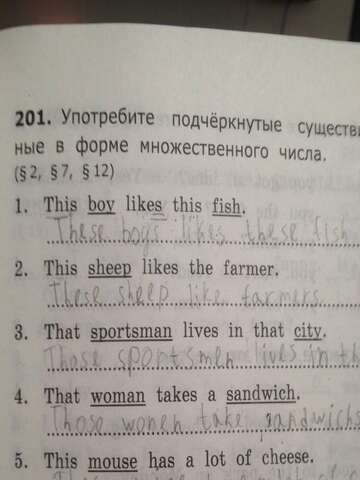 201. Употребите подчёркнутые существи
ные в форме множественного числа.
(§2, §7, §12)
1. This boy likes this fish.
These boys likes these fish
2. This sheep likes the farmer.
These sheep like farmers.
3. That sportsman lives in that city.
Those sportsmen lives in th
4. That woman takes a sandwich.
Those women take sandwichs
5. This mouse has a lot of cheese.